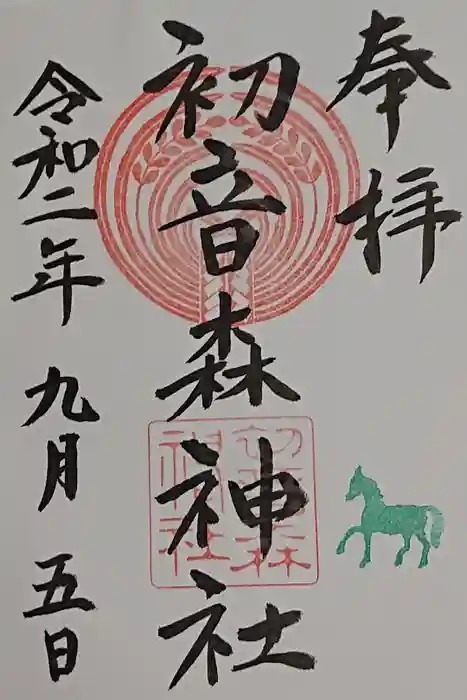 奉拝
初音森神社
初音森
神社
令和二年九月五日